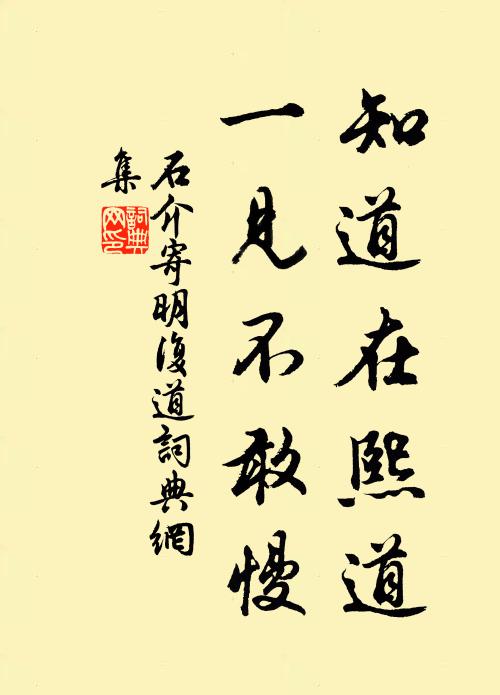 知道在熙道
一見不敢慢
石介寄明復道詞典網
集
詞典
网印